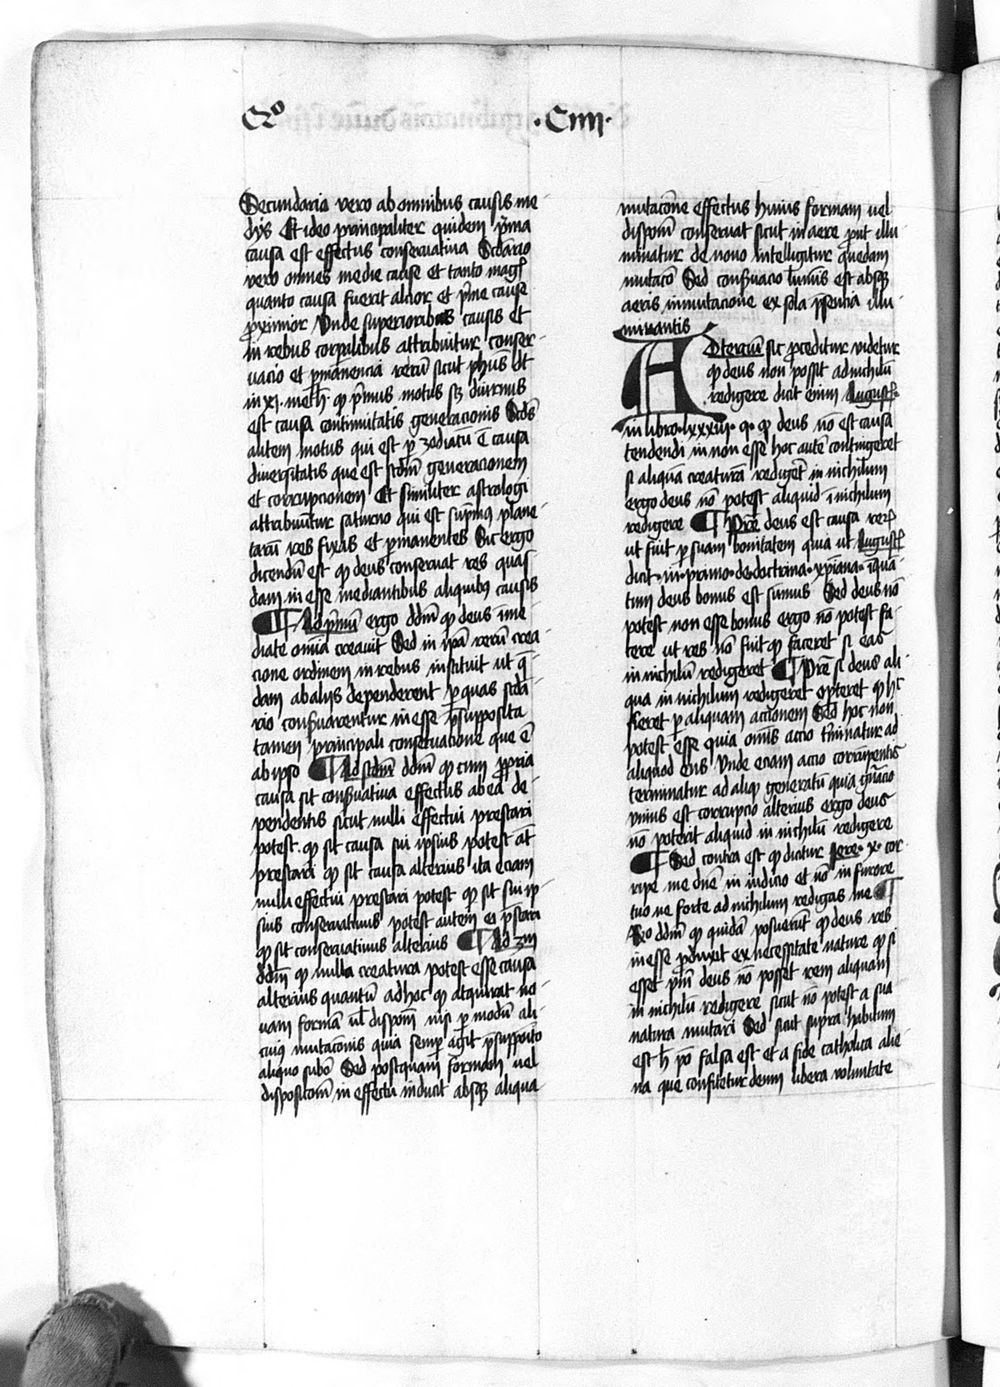 Qo .Ciiii.
Secundario vero ab omnibus causis me
dijs Et ideo principaliter quidem p̄ma
causa est effectus conservativa Scd̄ario
vero omnes medie cause et tanto mag̉
quanto causa fuerit alcior et p̄me cause
ꝓximior Unde superioribus causis et
in rebus corꝑalibus attribuitur conser
vacio et ꝑmanencia rerū sicut ph̄us dt̄
in xi. meth̄. qꝫ p̄mus motus sꝫ diurnus
est causa continuitatis generacionis Scd̄s
autem motus qui est ꝑ zodiacū ē causa
diversitatis que est scd̄m generacionem
et corrupcionem Et similiter astrologi
attribuūtur saturno qui est sup̄mus plane
tarū res fixas et ꝑmanentes Sic ergo
dicendū est qꝫ deus conservat res quas
dam in esse mediantibus aliquibꝰ causis
¶ Ad p̄mū ergo dd̄m qꝫ deus īme
diate oīa creavit Sed in ip̄a rerū crea
cione ordinem in rebus instituit ut q̄
dam ab alijs dependerent ꝑ quas scd̄a
rio conservarentur in esse p̄supposita
tamen principali conservacione que ē
ab ipso ¶ Ad scd̄m dd̄m qꝫ cum ꝓpria
causa sit conservativa effectus ab ea de
pendentis sicut nulli effectui prestari
potest. qꝫ sit causa sui ipsius potest at̄
prestari qꝫ sit causa alterius ita eciam
nulli effectui prestari potest qꝫ sit sui ip
sius conservativus potest autem ei p̄stari
qꝫ sit conservativus alterius ¶ Ad 3m
dd̄m qꝫ nulla creatura potest esse causa
alterius quantū ad hoc qꝫ acquirat no
vam formā vl̄ disposic̄om̄ nisi ꝑ modū ali
cuiꝰ mutacionis quia semꝑ agit p̄supposito
aliquo subc̄o Sed postquam formam vel
disposicionē in effectu inducit absqꝫ aliqua
mutacōne effectus huius formam vel
disposic̄om̄ conservat sicut in aere ꝓut illu
minatur de novo intelligitur quedam
mutacō Sed conservacio luminis est absqꝫ
aeris inmutacione ex sola p̄sentia illu
minantis
Ad tercium sic ꝓceditur videtur
qꝫ deus non possit ad nichilū
redigere dicit enim Augusti⁹
in libro. lxxxiii. q. qꝫ deus nō est causa
tendendi in non esse hoc autē contingeret
si aliquā creaturā redigeret in nichilum
ergo deus nō potest aliquid ī nichilum
redigere ¶ Pret̄ deus est causa rerꝝ
ut sint ꝑ suam bonitatem quia ut Augusti⁹
dicit. in. primo. de. doctrina. xp̄iana. inquā
tum deus bonus est sumus Sed deus nō
potest non esse bonus ergo nō potest fa
cere ut res nō sint qꝫ faceret si eas
in nichilū redigeret ¶ Pret̄ si deus ali
qua in nichilum redigeret oporteret qꝫ hc̄
fieret ꝑ aliquam accionem Sed hoc non
potest esse quia om̄is actio t̄minatur ad
aliquod ens Unde eciam actio corrūpentis
terminatur ad aliqꝫ generatū quia gn̄acio
unius est corrupcio alterius ergo deus
nō poterit aliquid in nichilū redigere
¶ Sed contra est qꝫ dicitur Jere. x. cor
ripe me dn̄e in iudicio et nō in furore
tuo ne forte ad nihilum redigas me ¶
Ro dd̄m qꝫ quidā posuerūt qꝫ deus res
in esse ꝓduxit ex necessitate nature qꝫ si
esset p̄m̄ deus nō posset rem aliquam
in nichilū redigere sicut nō potest a sua
natura mutari Sed sicut supra habitum
est h̄ po falsa est et a fide catholica alie
na que confitetur deum libera voluntate